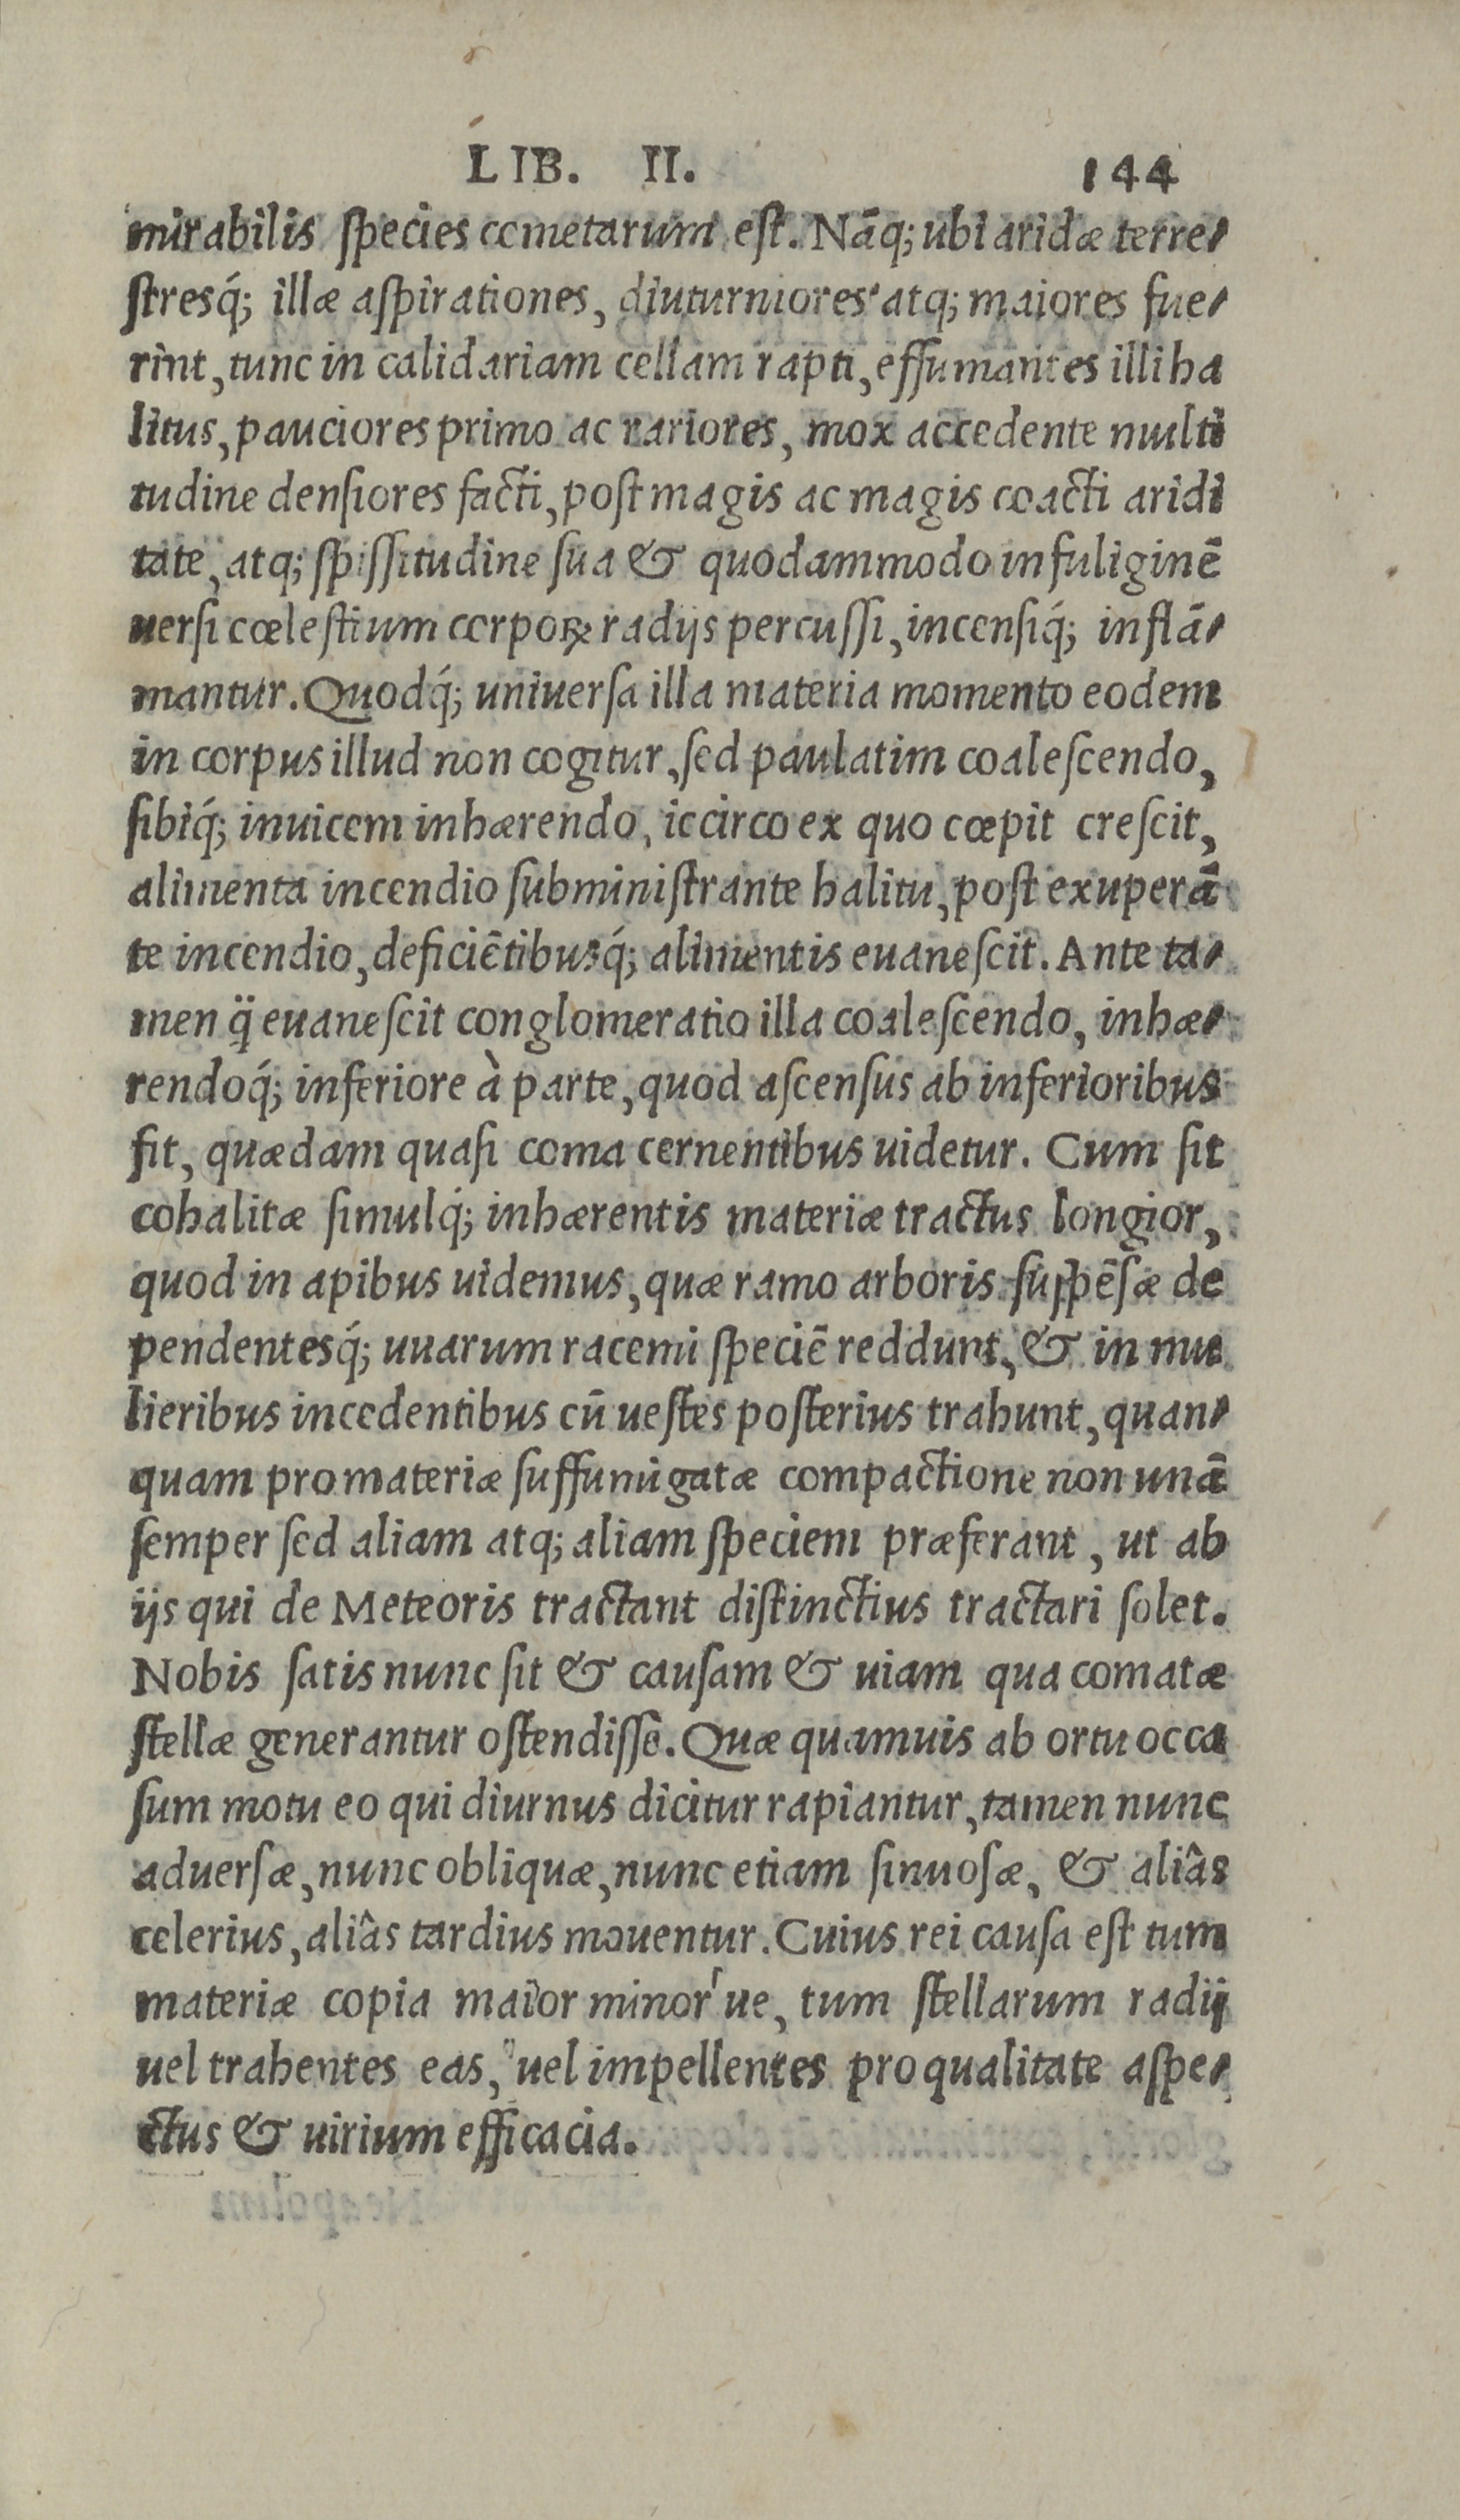 LIB. II. 144
mirabilis ſpecies cometarum eſt. Nãq; ubi aridæ terre-
ſtresq́; illæ aſpirationes, diuturniores atq; maiores fue-
rint, tunc in calidariam cellam rapti, effumantes illi ha
litus, pauciores primo ac rariores, mox accedente multi
tudine denſiores facti, poſt magis ac magis coacti aridi
tate, atq; ſpiſſitudine ſua & quodammodo in fuliginẽ
uerſi cœleſtium corpoꝝ radijs percuſſi, incenſiq́; inflã-
mantur. Quodq́; uniuerſa illa materia momento eodem
in corpus illud non cogitur, ſed paulatim coaleſcendo,
ſibiq́; inuicem inhærendo, iccirco ex quo cœpit creſcit,
alimenta incendio ſubminiſtrante halitu, poſt exuperã
te incendio, deficiẽtibusq́; alimentis euaneſcit. Ante ta-
men q̈ euaneſcit conglomeratio illa coaleſcendo, inhæ-
rendoq́; inferiore à parte, quod aſcenſus ab inferioribus
fit, quædam quaſi coma cernentibus uidetur. Cum ſit
cohalitæ ſimulq́; inhærentis materiæ tractus longior,
quod in apibus uidemus, quæ ramo arboris ſuſpẽſæ de
pendentesq́; uuarum racemi ſpeciẽ reddunt, & in mu
lieribus incedentibus cũ ueſtes poſterius trahunt, quan-
quam pro materiæ ſuffumigatæ compactione non unã
ſemper ſed aliam atq; aliam ſpeciem præferant, ut ab
ijs qui de Meteoris tractant diſtinctius tractari ſolet.
Nobis ſatis nunc ſit & cauſam & uiam qua comatæ
ſtellæ generantur oſtendiſſe. Quæ quamuis ab ortu occa
ſum motu eo qui diurnus dicitur rapiantur, tamen nunc
aduerſæ, nunc obliquæ, nunc etiam ſinuoſæ, & aliâs
celerius, aliâs tardius mouentur. Cuius rei cauſa eſt tum
materiæ copia maior minor'ue, tum ſtellarum radij
uel trahentes eas, uel impellentes pro qualitate aſpe-
ctus & uirium efficacia.